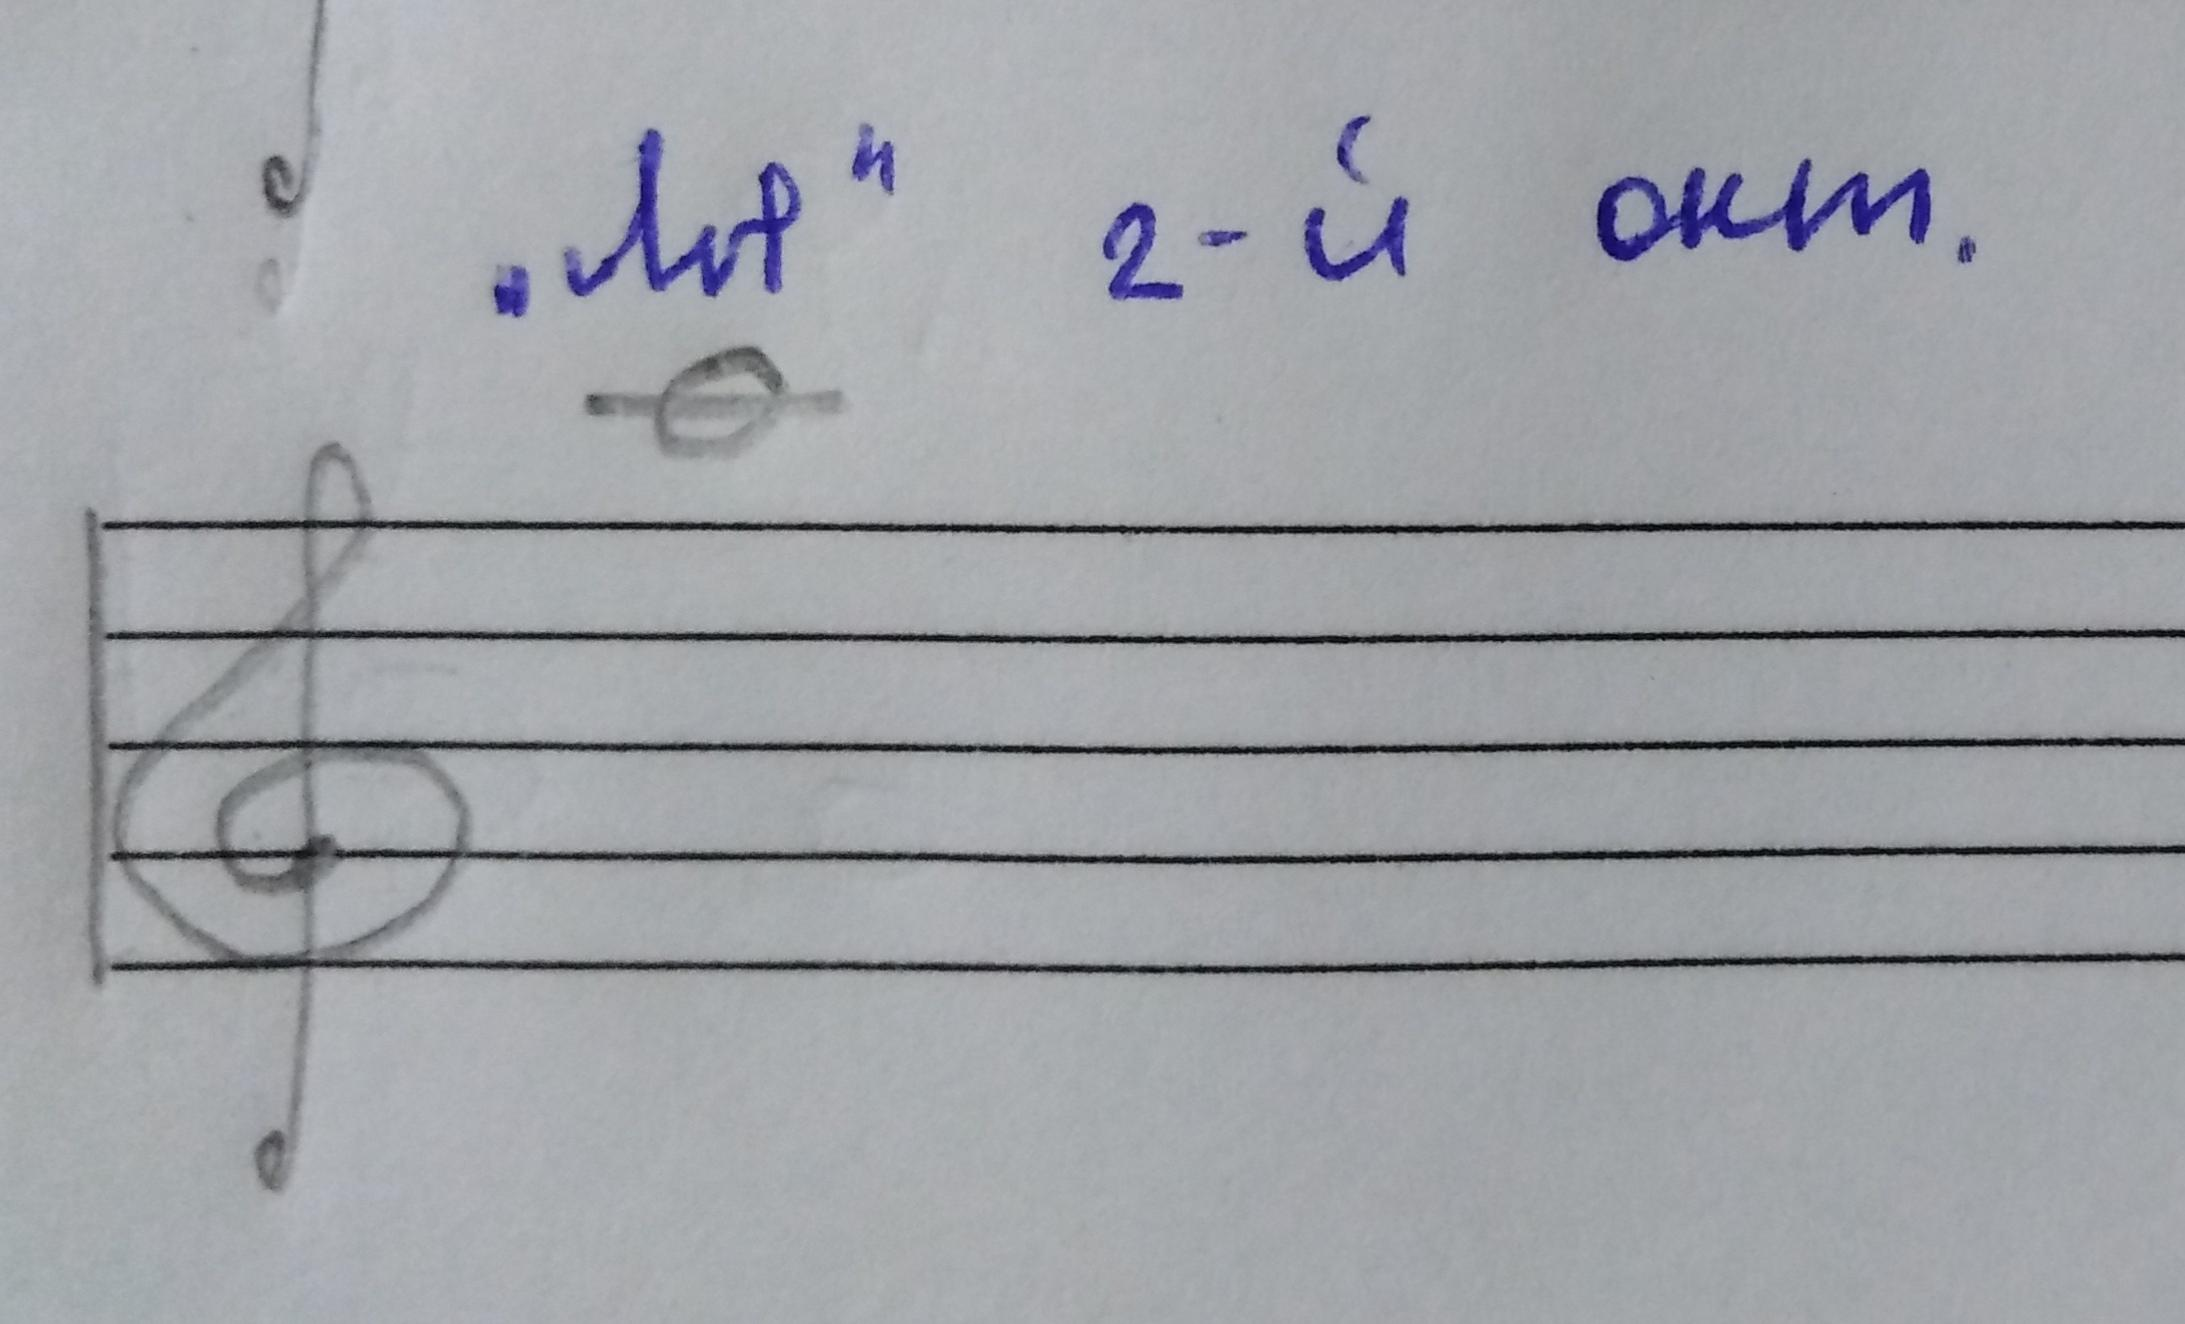 „Ля" 2-й окт.